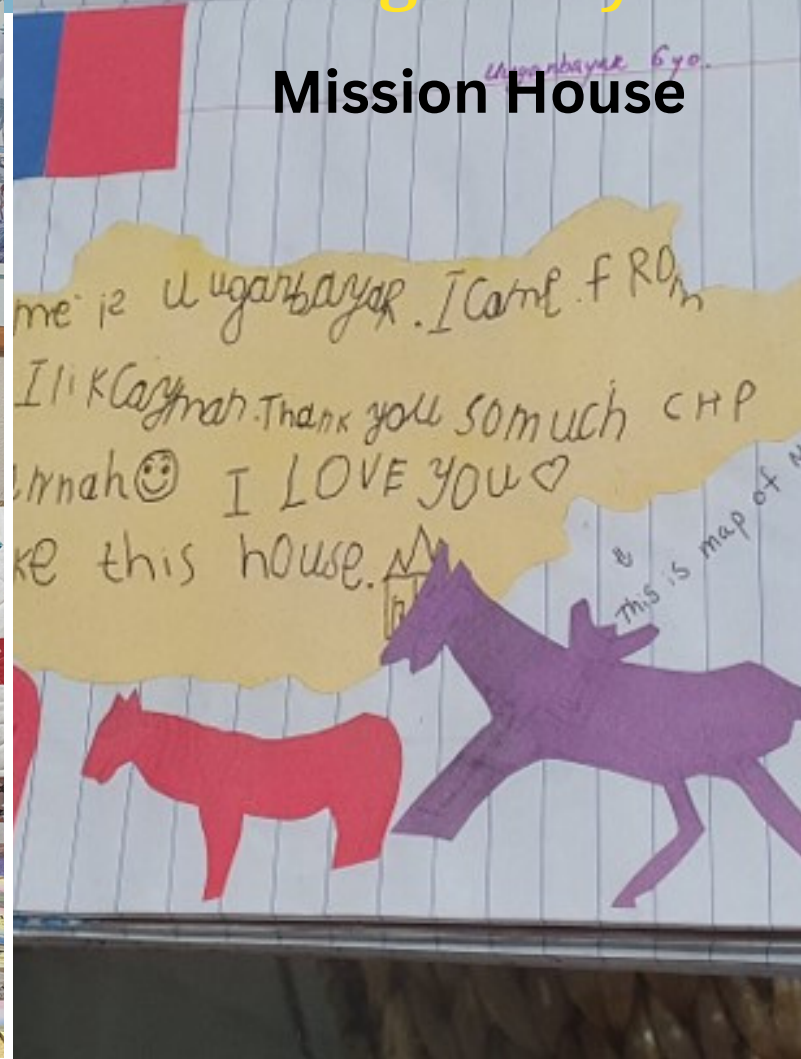 Mission House
Uuganbayar 6yo.
me is Uuganbayar. I Came. fROm
I lik Cayman. Thank you so much CHP
nnah☺ I LOVE YOU♡
ke this house.
This is map of